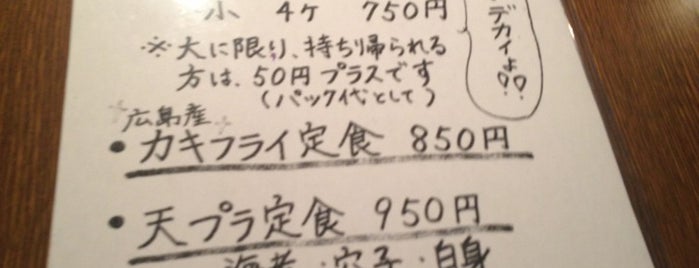 小 4ケ 750円
デカイよ!!
※大に限り、持ち帰られる
方は、50円プラスです
(パック代として)
広島産
・カキフライ定食 850円
・天プラ定食 950円
海老・穴子・白身